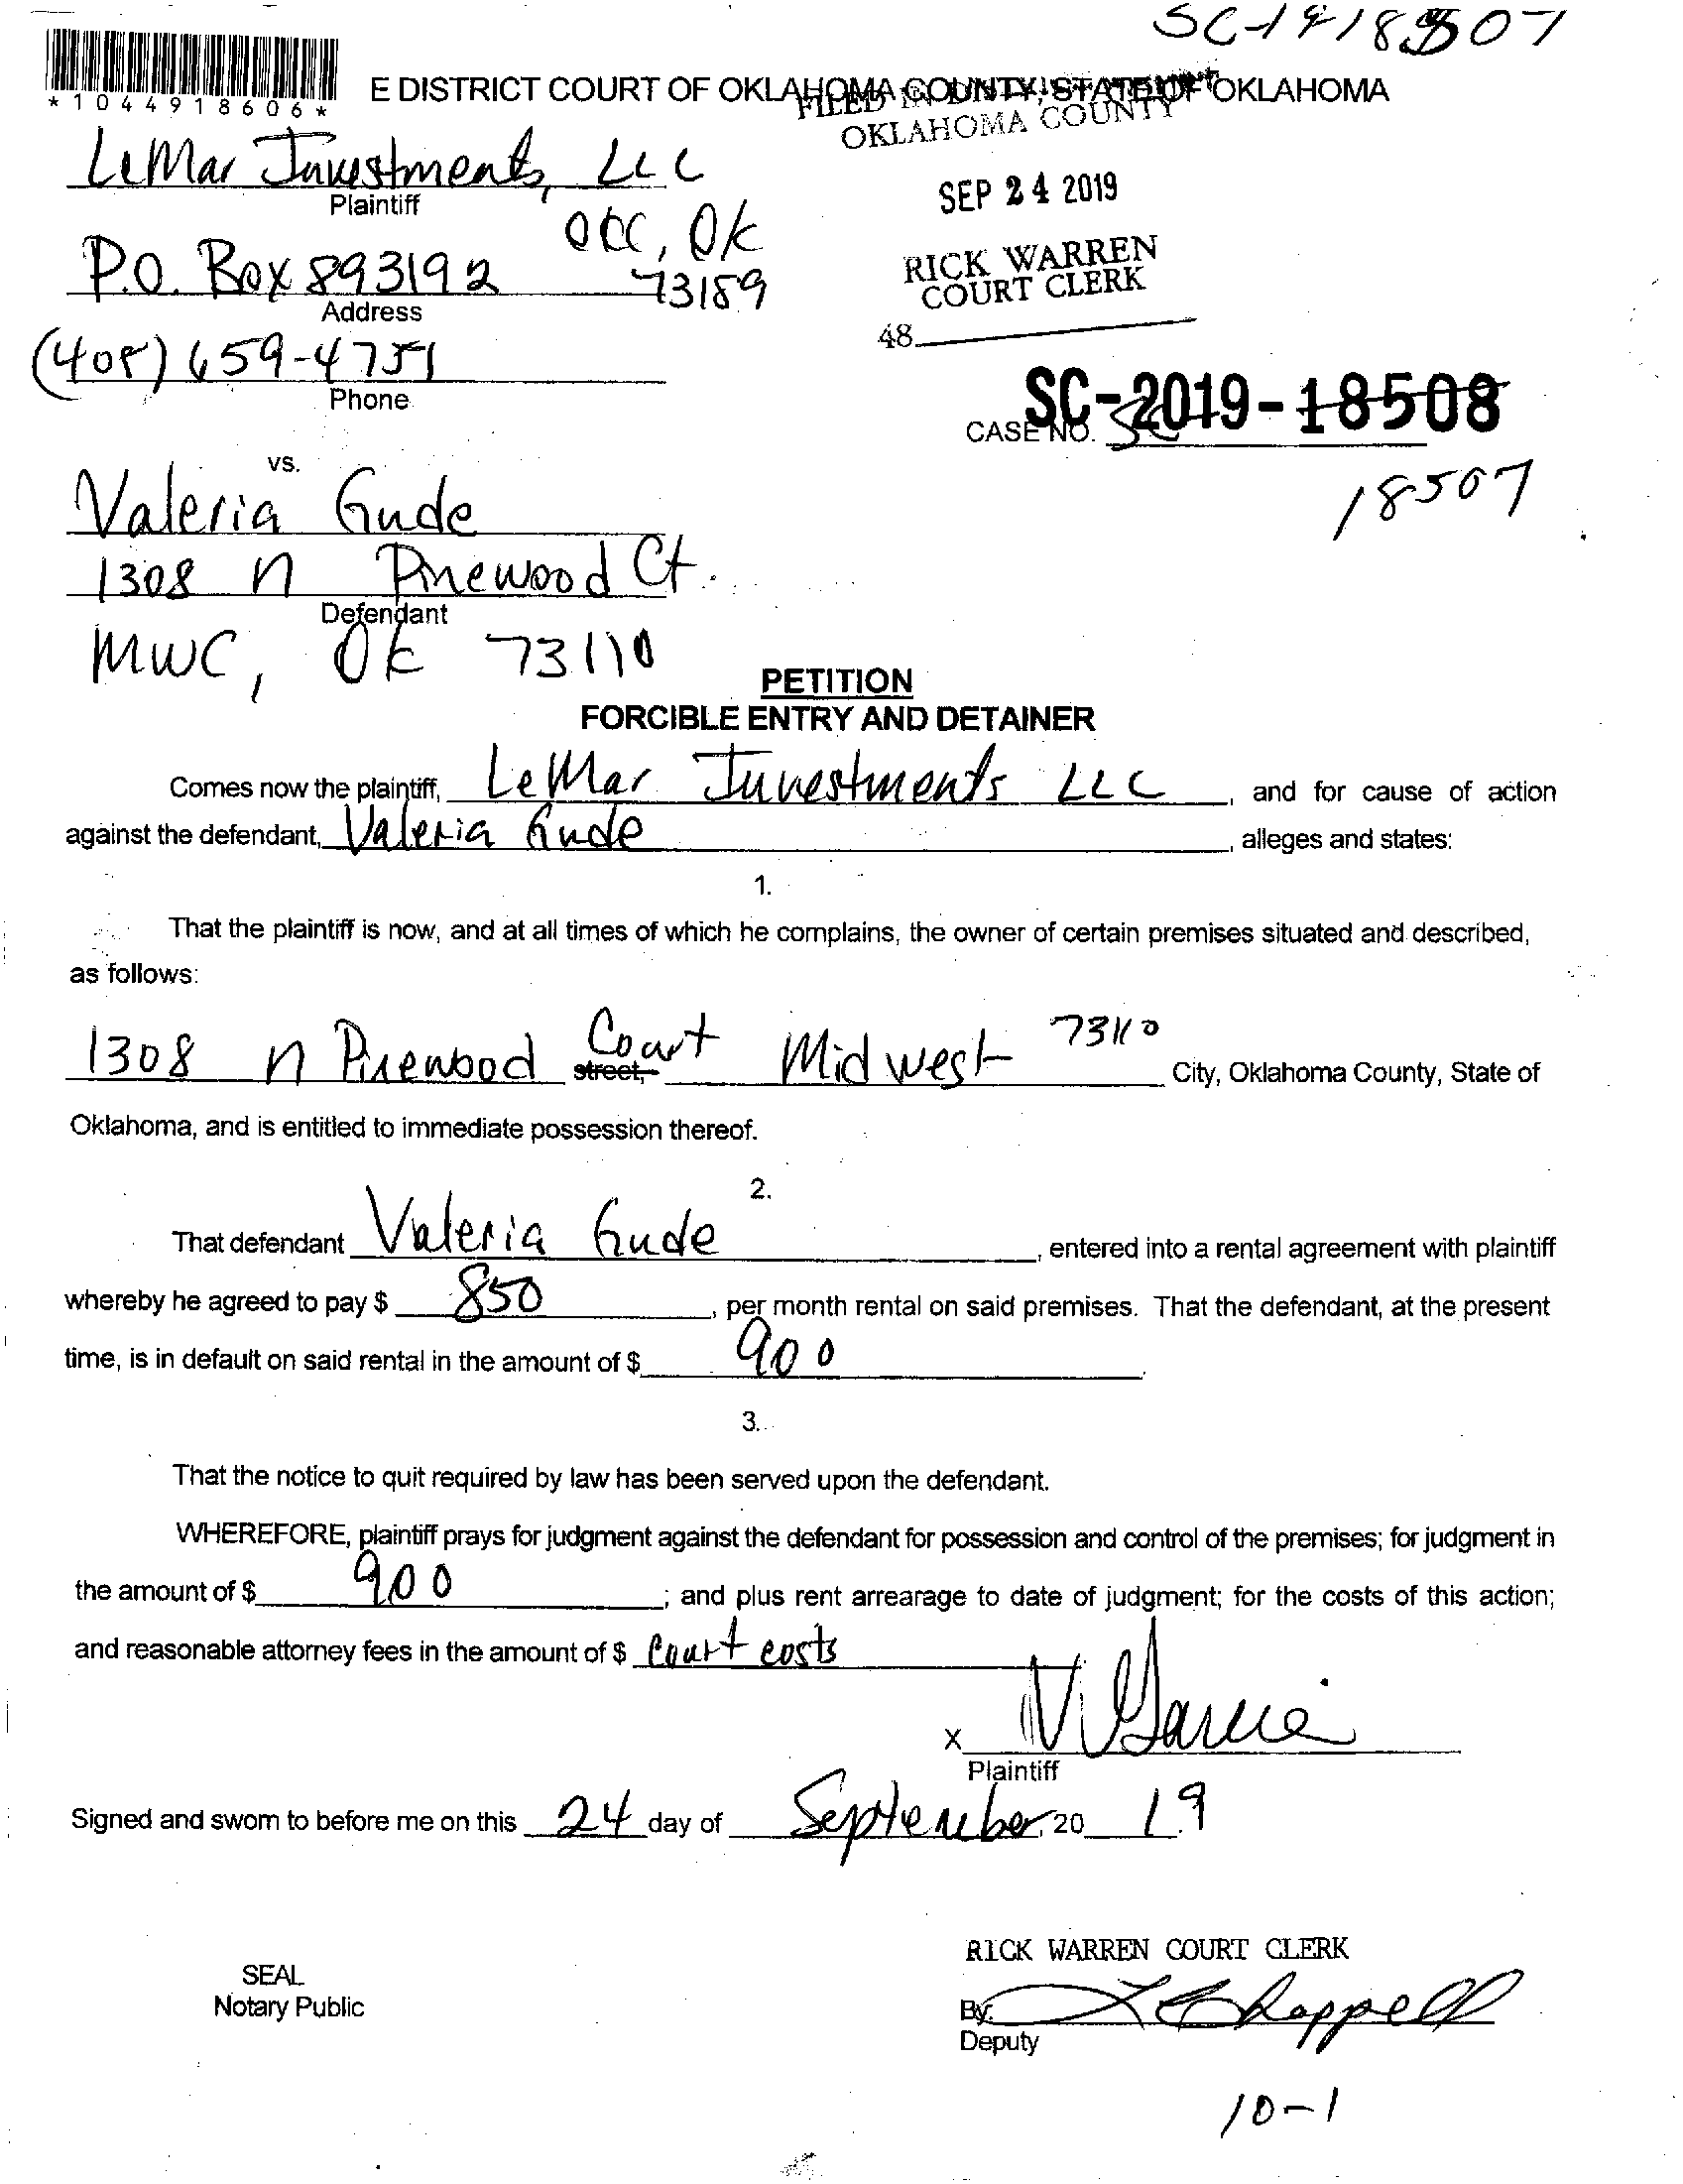 SC-19-18507
*1044918606*
E DISTRICT COURT OF OKLAHOMA COUNTY, STATE OF OKLAHOMA
FILED IN DISTRICT COURT
OKLAHOMA COUNTY
LeMar Investments, LLC
Plaintiff
SEP 24 2019
P.O. Box 893192 OKC, OK 73189
Address
RICK WARREN
COURT CLERK
48
(405) 659-4751
Phone
CASE NO. SC-2019-18508
18507
vs.
Valeria Gude
1308 N Pinewood Ct.
Defendant
MWC, OK 73110
PETITION
FORCIBLE ENTRY AND DETAINER
Comes now the plaintiff, LeMar Investments LLC, and for cause of action
against the defendant, Valeria Gude, alleges and states:
1.
That the plaintiff is now, and at all times of which he complains, the owner of certain premises situated and described,
as follows:
1308 N Pinewood street, Court Midwest 73110 City, Oklahoma County, State of
Oklahoma, and is entitled to immediate possession thereof.
2.
That defendant Valeria Gude, entered into a rental agreement with plaintiff
whereby he agreed to pay $ 850, per month rental on said premises. That the defendant, at the present
time, is in default on said rental in the amount of $ 900.
3.
That the notice to quit required by law has been served upon the defendant.
WHEREFORE, plaintiff prays for judgment against the defendant for possession and control of the premises; for judgment in
the amount of $ 900; and plus rent arrearage to date of judgment; for the costs of this action;
and reasonable attorney fees in the amount of $ Court costs
X V Garcia
Plaintiff
Signed and sworn to before me on this 24 day of September, 20 19
RICK WARREN COURT CLERK
SEAL
Notary Public
By: Chappell
Deputy
10-1